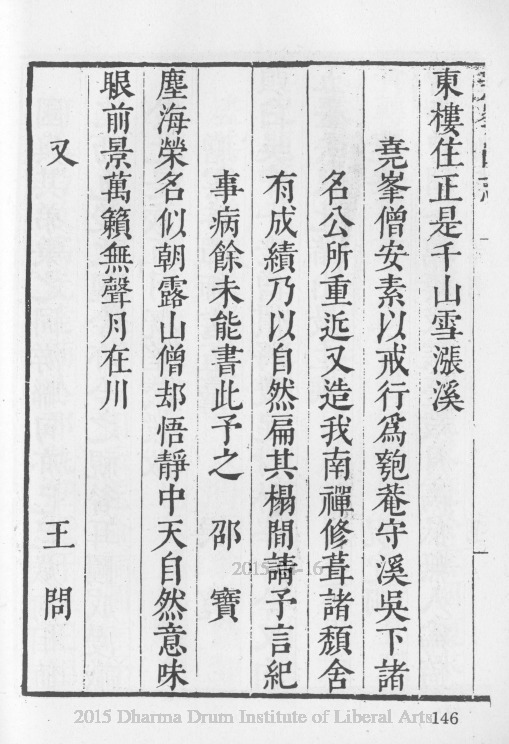 東樓住正是千山雪漲溪
堯峯僧安素以戒行爲匏菴守溪吳下諸
名公所重近又造我南禪修葺諸頹舍
有成績乃以自然扁其榻間請予言紀
事病餘未能書此予之 邵 寶
塵海榮名似朝露山僧却悟靜中天自然意味
眼前景萬籟無聲月在川
又 王 問
2015 Dharma Drum Institute of Liberal Arts
146